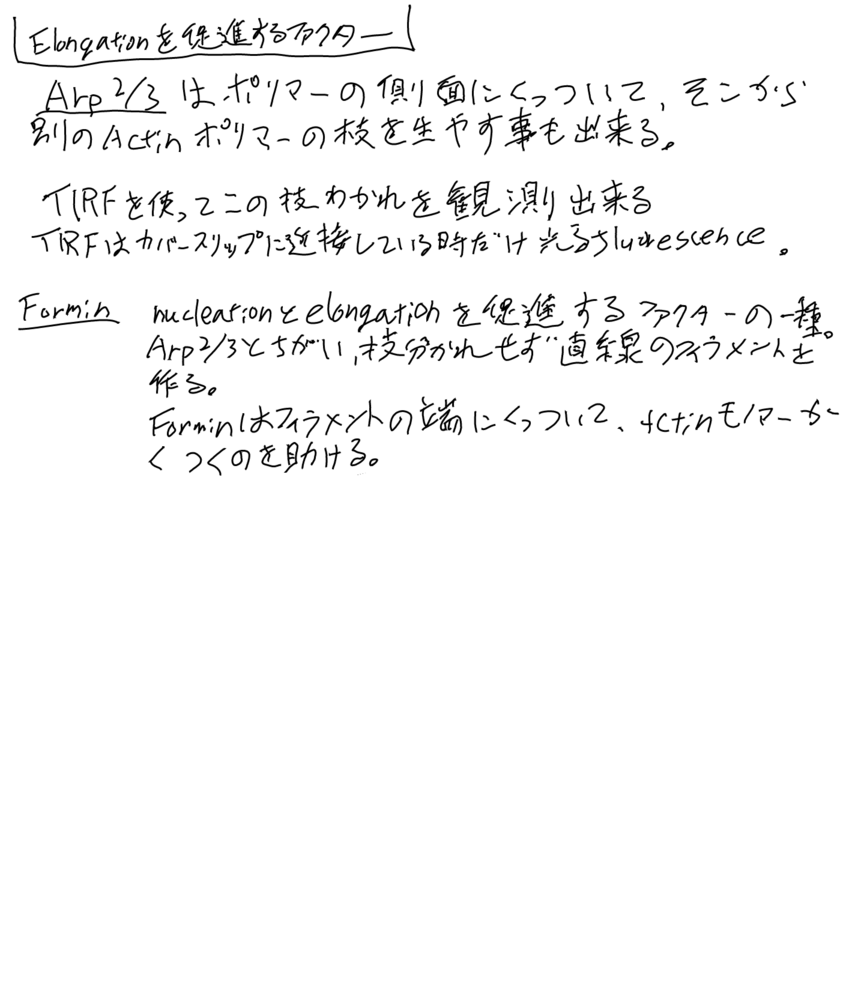 Elongationを促進するファクター
Arp 2/3 はポリマーの側面にくっついて、そこから
別のActinポリマーの枝を生やす事も出来る。
TIRFを使ってこの枝わかれを観測出来る
TIRFはカバースリップに近接している時だけ光るflurescence。
Formin nucleationとelongationを促進するファクターの一種。
Arp2/3とちがい、枝分かれせず直線のフィラメントを
作る。
Forminはフィラメントの端にくっついて、actinモノマーが
くつくのを助ける。